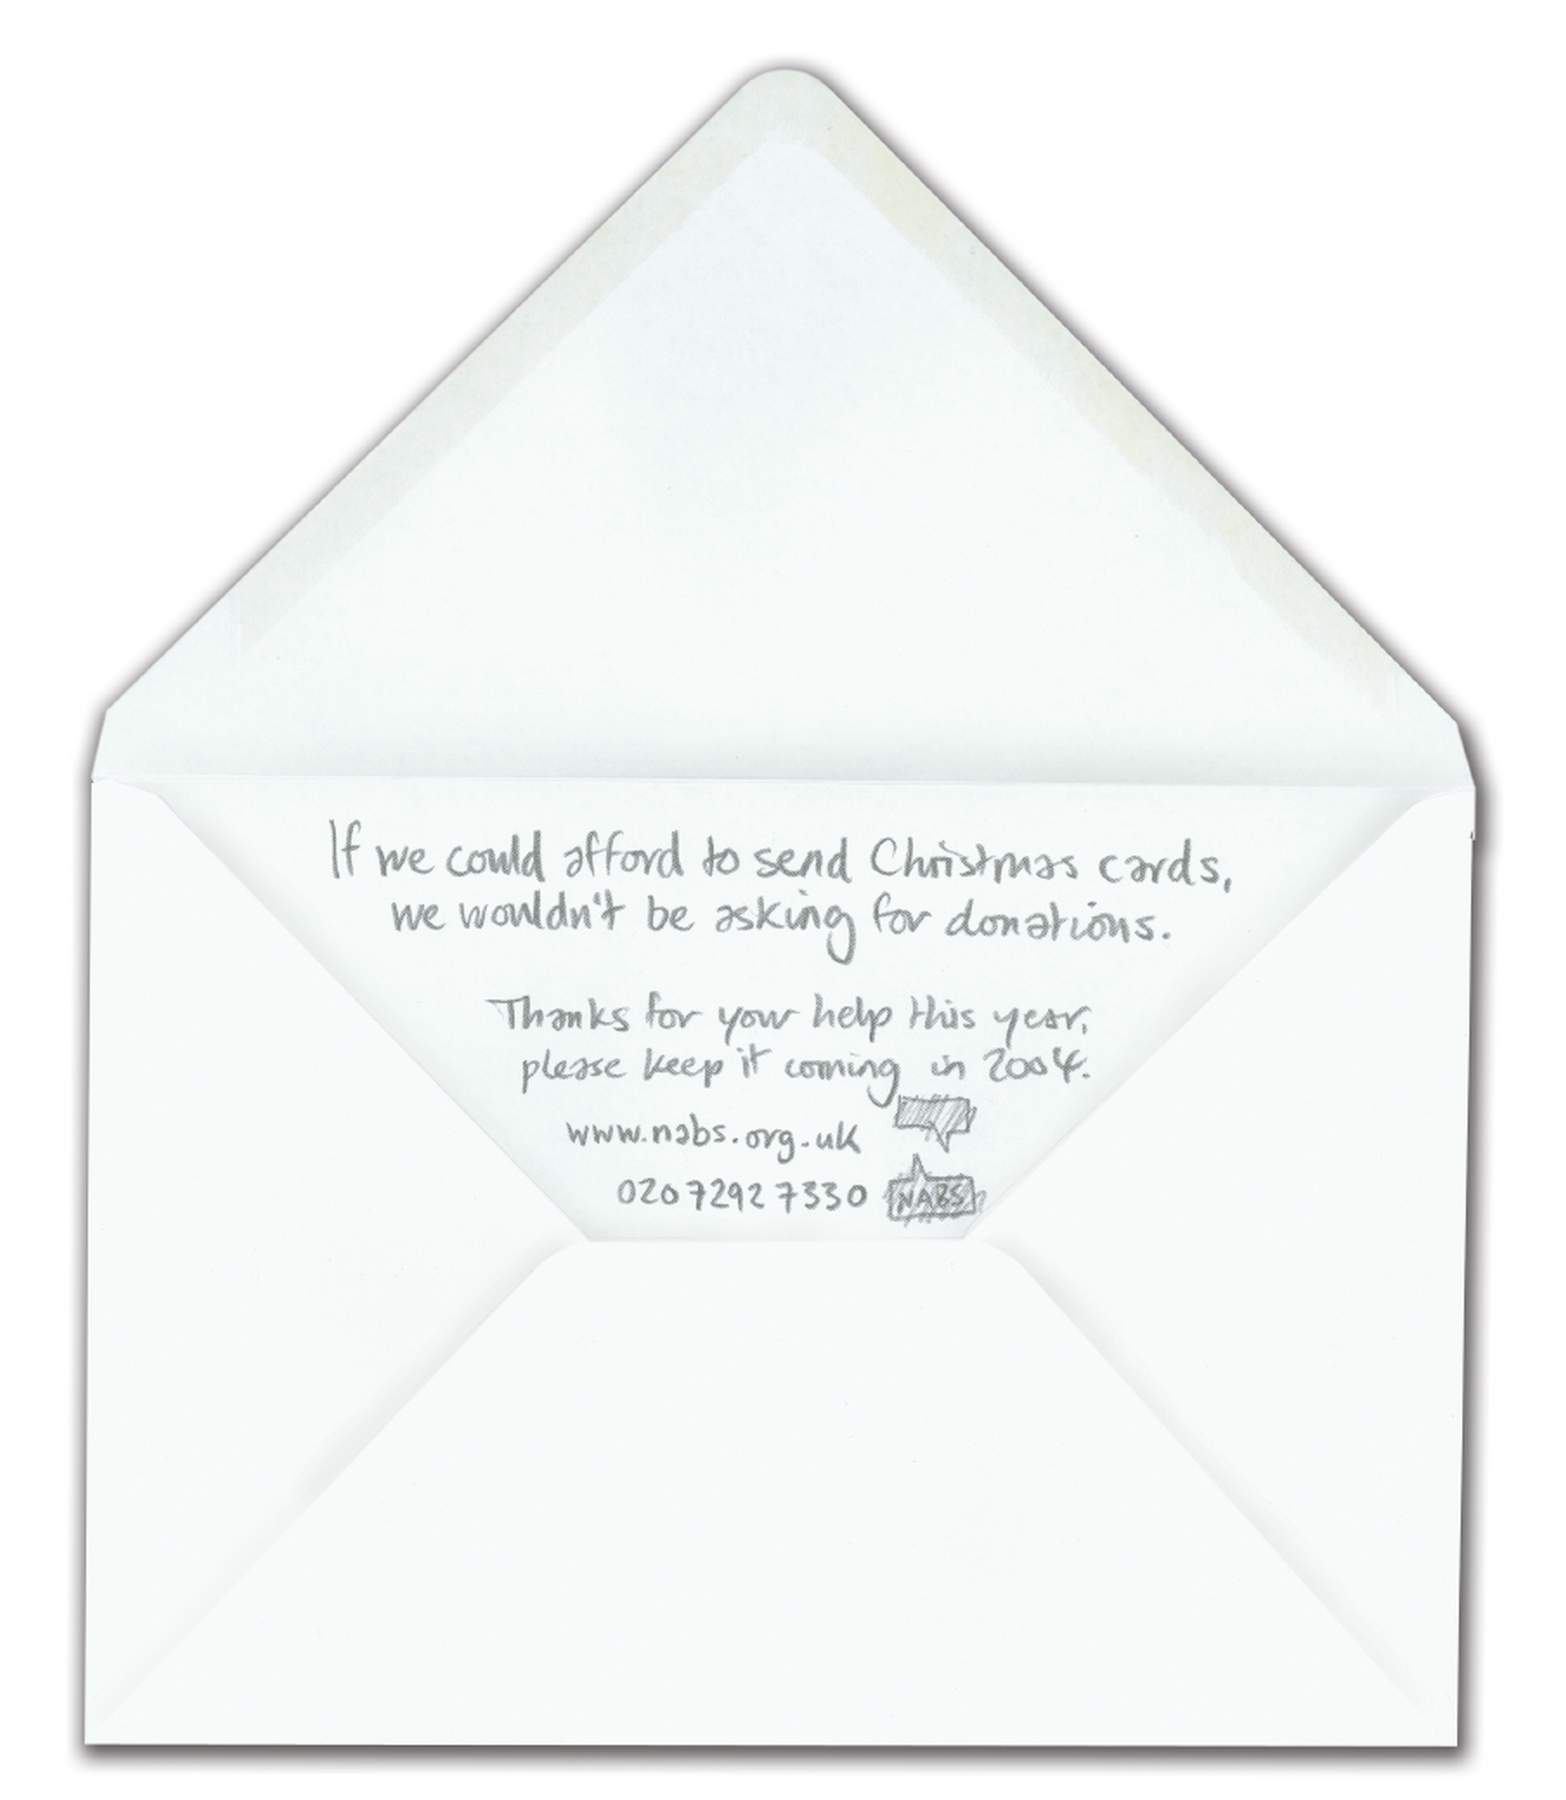 If we could afford to send Christmas cards,
we wouldn't be asking for donations.
Thanks for your help this year,
please keep it coming in 2004.
www.nabs.org.uk
020 7292 7330 NABS